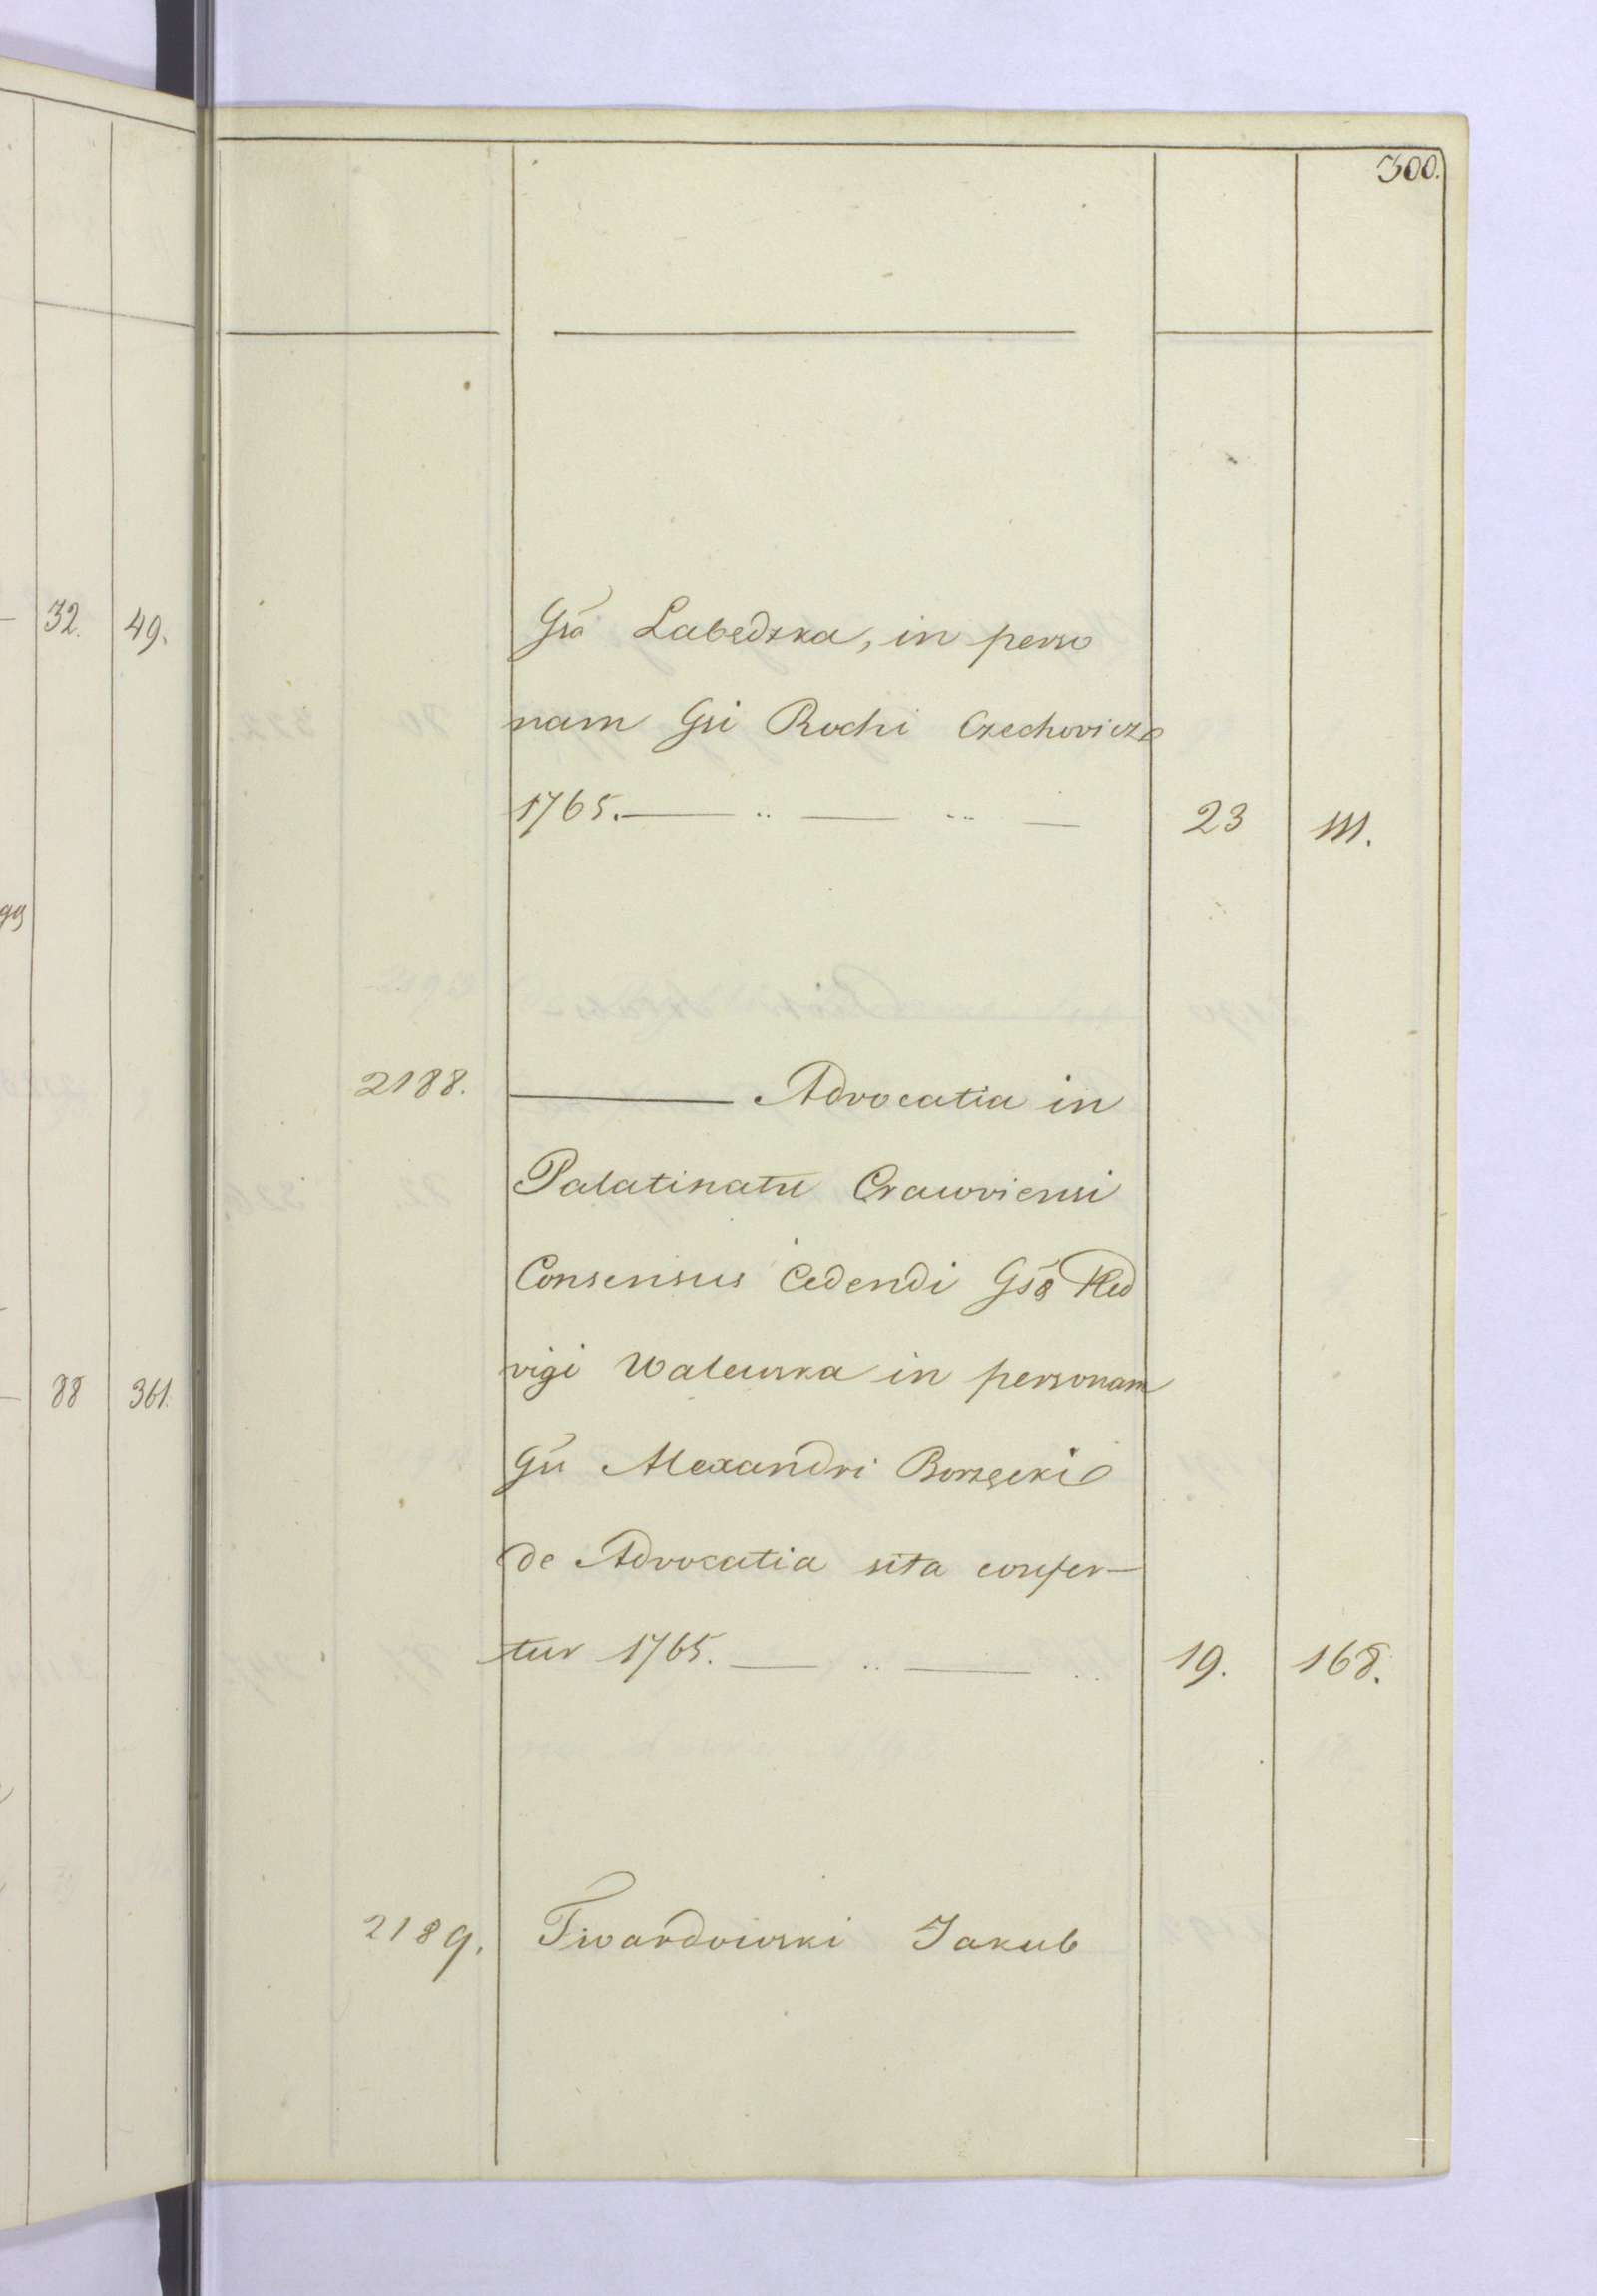 300.
32. 49.
Gsa Labędzka, in perso
nam Gsi Rochi Czechovicz
1765. — .. — ... — 23 111.
gg
2188. — Advocatia in
Palatinatu Cracoviensi
Consensus Cedendi Gsa Hed
vigi Walewska in personam
88 361.
Gsi Alexandri Borzęcki
de Advocatia sita confer-
tur 1765. — .. — .. 19. 168.
2189. Twardowski Jakub